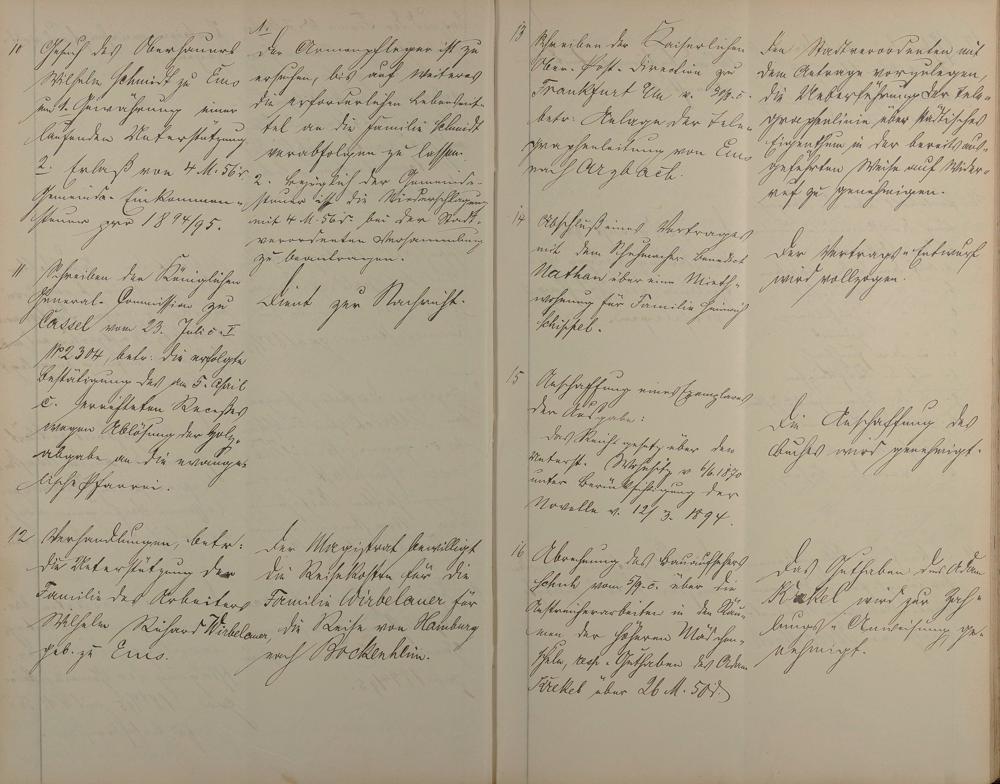 10 Gesuch des Oberhauers
Wilhelm Schmidt zu Ems
um 1. Gewährung einer
laufenden Unterstützung
2. Erlaß von 4 M. 56 d.
Gemeinde-Einkommen-
steuer pro 1894/95.
1.
Der Armenpfleger ist zu
ersuchen, bis auf weiteres
die erforderlichen Lebensmit-
tel an die Familie Schmidt
verabfolgen zu lassen.
2. bezüglich der Gemeinde-
steuer ist die Niederschlagung
mit 4 M. 56 d. bei der Stadt-
verordneten Versammlung
zu beantragen.
11 Schreiben der Königlichen
General-Commission zu
Cassel vom 23. Juli c. I
No 2304, betr. die erfolgte
Bestätigung des am 5. April
c. errichteten Recesses
wegen Ablösung der Holz-
abgabe an die evange-
lische Pfarrei.
Dient zur Nachricht.
12 Verhandlungen, betr:
die Unterstützung der
Familie des Arbeiters
Wilhelm Richard Wirbelauer,
geb. zu Ems.
Der Magistrat bewilligt
die Reisekosten für die
Familie Wirbelauer für
die Reise von Hamburg
nach Bockenheim.
13 Schreiben der Kaiserlichen
Ober-Post-Direction zu
Frankfurt a/M v.
betr. Anlage der Tele-
graphenleitung von Ems
nach Arzbach.
Den Stadtverordneten mit
dem Antrage vorzulegen,
die Ueberführung der Tele-
graphenlinie über städtisches
Eigenthum in der bereits aus-
geführten Weise auf Wider-
ruf zu genehmigen.
14 Abschluß eines Vertrages
mit dem Schuhmacher Benedict
Nathan über eine Mieth-
wohnung für Familie Heinrich
Schippel.
Der Vertrags-Entwurf
wird vollzogen.
15 Anschaffung eines Exemplares
der Ausgabe:
Das Reichsgesetz über den
Unterst. Wohnsitz v. 6/6. 1870
unter Berücksichtigung der
Novelle v. 12/3. 1894.
Die Anschaffung des
Buches wird genehmigt.
16 Abrechnung des Bauaufsehers
vom c. über die
Anstreicherarbeiten in den Räu-
men der höheren Mädchen-
schule, resp. Guthaben des Adam
Kaekel über 26 M. 50 d.
Das Guthaben des Adam
Kaekel wird zur Zah-
lungs-Anweisung ge-
nehmigt.